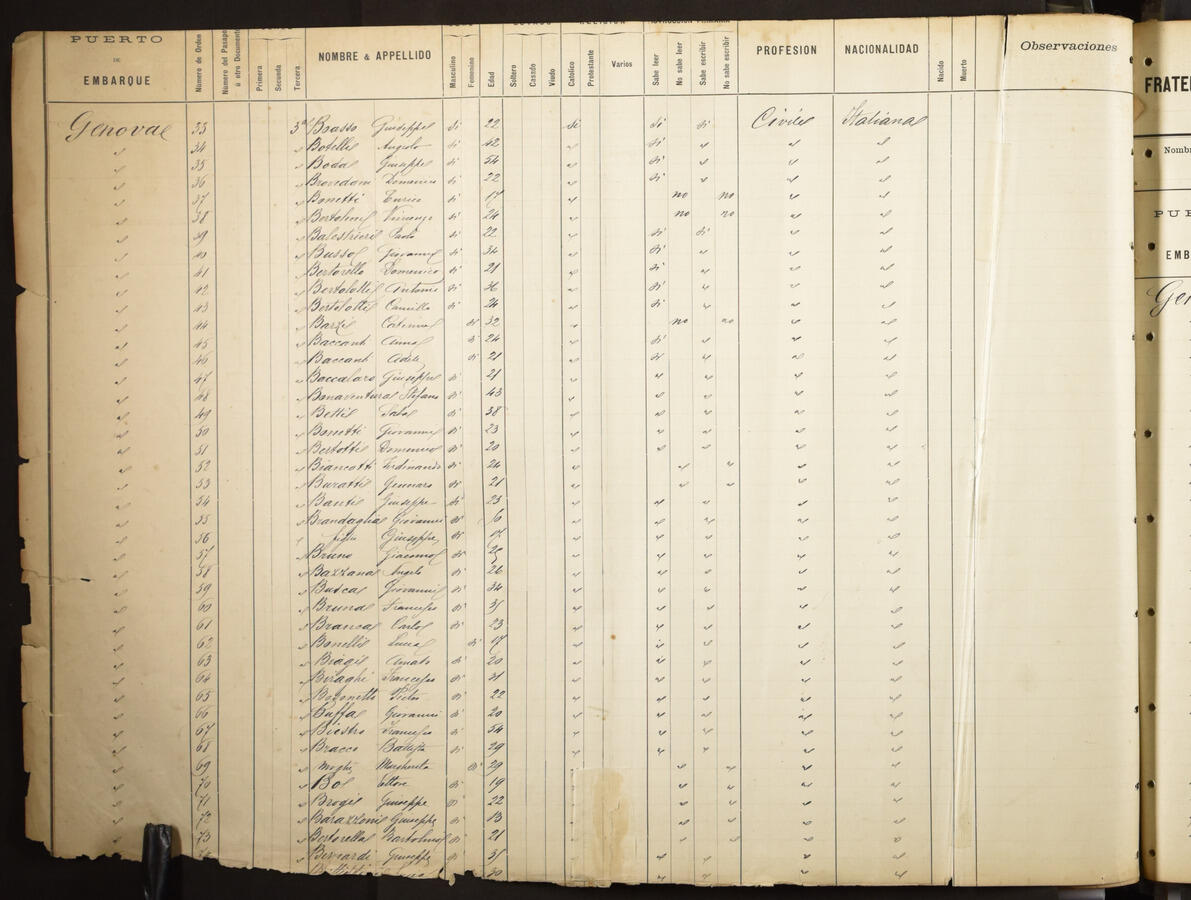 PUERTO DE EMBARQUE Número de Orden Número del Pasaporte ú otro Documento Primera Segunda Tercera NOMBRE & APPELLIDO Masculino Femenino Edad Soltero Casado Viudo Catolico Protestante Varios Sabe leer No sabe leer Sabe escribir No sabe escribir PROFESION NACIONALIDAD Nacido Muerto Observaciones
Genova 33 3ª Basso Giuseppe si 22 si si si Civile Italiana
34 Botelli Angelo si 42 " si " " "
35 Boda Giuseppe si 54 " si " " "
36 Domenico si 22 " si " " "
37 Bonetti Enrico si 17 " no no " "
38 Vincenzo si 24 " no no " "
39 Balestrieri Paolo si 22 " si si " "
40 Busso Giovanni si 34 " si " " "
41 Bertorello Domenico si 21 " si " " "
42 Bertolotti Antonio si 36 " si " " "
43 Bertolotti Camillo si 24 " si " " "
44 Barzi Caterina si 32 " no no " "
45 Baccanti Anna si 24 " si " " "
46 Baccanti Adele si 21 " si " " "
47 Baccalaro Giuseppe si 21 " " " " "
48 Bonaventura Stefano si 43 " " " " "
49 Betti si 38 " " " " "
50 Bonetti Giovanni si 23 " " " " "
51 Bertotti Domenico si 20 " " " " "
52 Biancotti Ferdinando si 24 " " " " "
53 Buratti Gennaro si 21 " " " " "
54 Banti Giuseppe si 23 " " " " "
55 Brandaglia Giovanni si " " " " "
56 figlio Giuseppe si 17 " " " " "
57 Bruno Giacomo si " " " " "
58 Bazzana Angelo si 26 " " " " "
59 Busca Giovanni si 34 " " " " "
60 Bruna Francesco si " " " " "
61 Branca Carlo si 23 " " " " "
62 Bonelli si 17 " " " " "
63 Biagi Amato si 20 " " " " "
64 Biraghi Francesco si 31 " " " " "
65 Pietro si 22 " " " " "
66 Giovanni si 20 " " " " "
67 Biestro Francesco si 54 " " " " "
68 Bracco Battista si 29 " " " " "
69 moglie Margherita si 29 " " " "
70 Bo Ettore si 19 " " " " "
71 Brogi Giuseppe si 22 " " " " "
72 Barazzoni Giuseppe si 13 " " " " "
73 Bertorella Bartolomeo si 21 " " " "
Bernardi Giuseppe si " " " "
30
FRATE
Nomb
PUE
EMB
Gen